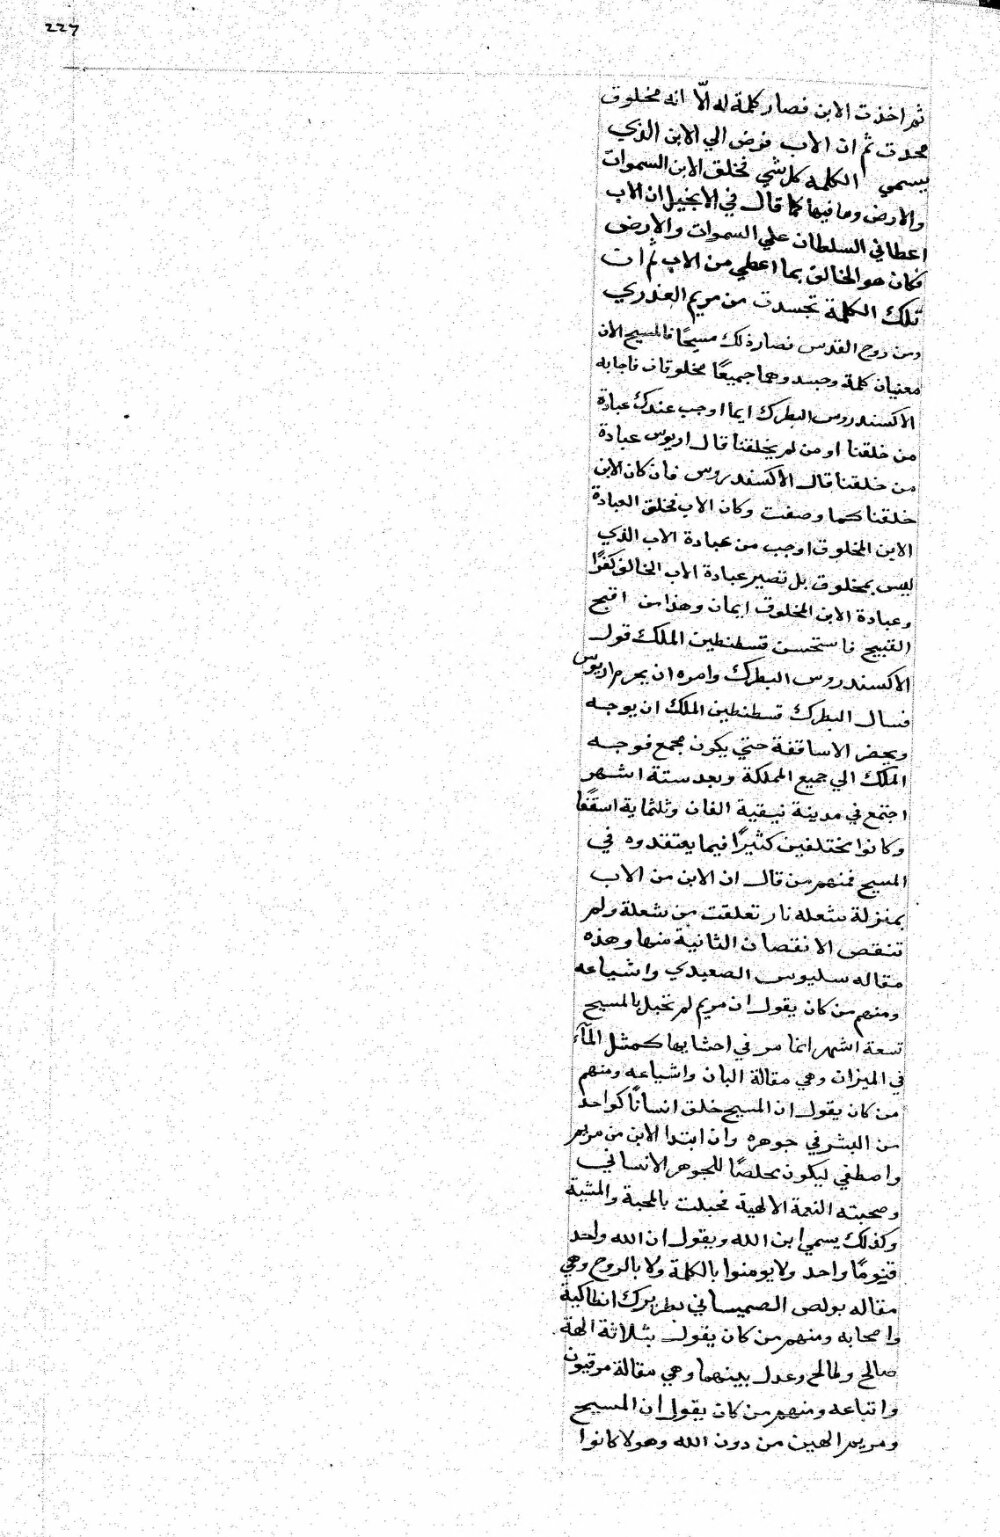 227
ثم اخذت الابن فصار كلمة له الّا انه مخلوق
محدث ثم ان الاب فوض الي الابن الذي
يسمي الكلمة كل شي فخلق الابن السموات
والارض وما فيها كما قال في الانجيل ان الاب
اعطاني السلطان علي السموات والارض
فكان هو الخالق بما اعطي من الاب ثم ان
تلك الكلمة تجسدت من مريم العذري
ومن روح القدس فصار ذلك مسيحًا فالمسيح الان
معنيان كلمة وجسد وهما جميعًا مخلوقان فاجابه
الاكسندروس البطرك ايما اوجب عندك عبادة
من خلقنا او من لم يخلقنا قال اريوس عبادة
من خلقنا قال الاكسندروس فان كان الابن
خلقنا كما وصفت وكان الاب فخلق العبادة
الابن المخلوق اوجب من عبادة الاب الذي
ليس بمخلوق بل تصير عبادة الاب الخالق كفرًا
وعبادة الابن المخلوق ايمان وهذا من اقبح
القبيح فاستحسن قسطنطين الملك قول
الاكسندروس البطرك وامره ان يحرم اريوس
فسال البطرك قسطنطين الملك ان يوجه
ويحضر الاساقفة حتي يكون مجمع فوجه
الملك الي جميع المملكة وبعد ستة اشهر
اجتمع في مدينة نيقية الفان وثلثماية اسقفًا
وكانوا مختلفين كثيرًا فيما يعتقدوه في
المسيح فمنهم من قال ان الابن من الاب
بمنزلة شعله نار تعلقت من شعلة ولم
تنقص الا نقصان الثانية منها وهذه
مقاله سليوس الصعيدي واشياعه
ومنهم من كان يقول ان مريم لم تحبل بالمسيح
تسعة اشهر انما مر في احشايها كمثل المآء
في الميزان وهي مقالة البان واشياعه ومنهم
من كان يقول ان المسيح خلق انسانًا كواحد
من البشر في جوهره وان ابتدا الابن من مريم
واصطفي ليكون مخلصًا للجوهر الانساني
وصحبته النعمة الالهية فحبلت بالمحبة والمشية
وكذلك يسمي ابن الله ويقول ان الله واحد
قنومًا واحد ولا يومنوا بالكلمة ولا بالروح وهي
مقاله بولص الصميساني بطريرك انطاكية
واصحابه ومنهم من كان يقول بثلاثة الهة
صالح وطالح وعدل بينهما وهي مقالة مرقيون
واتباعه ومنهم من كان يقول ان المسيح
ومريم الهين من دون الله وهولا كانوا